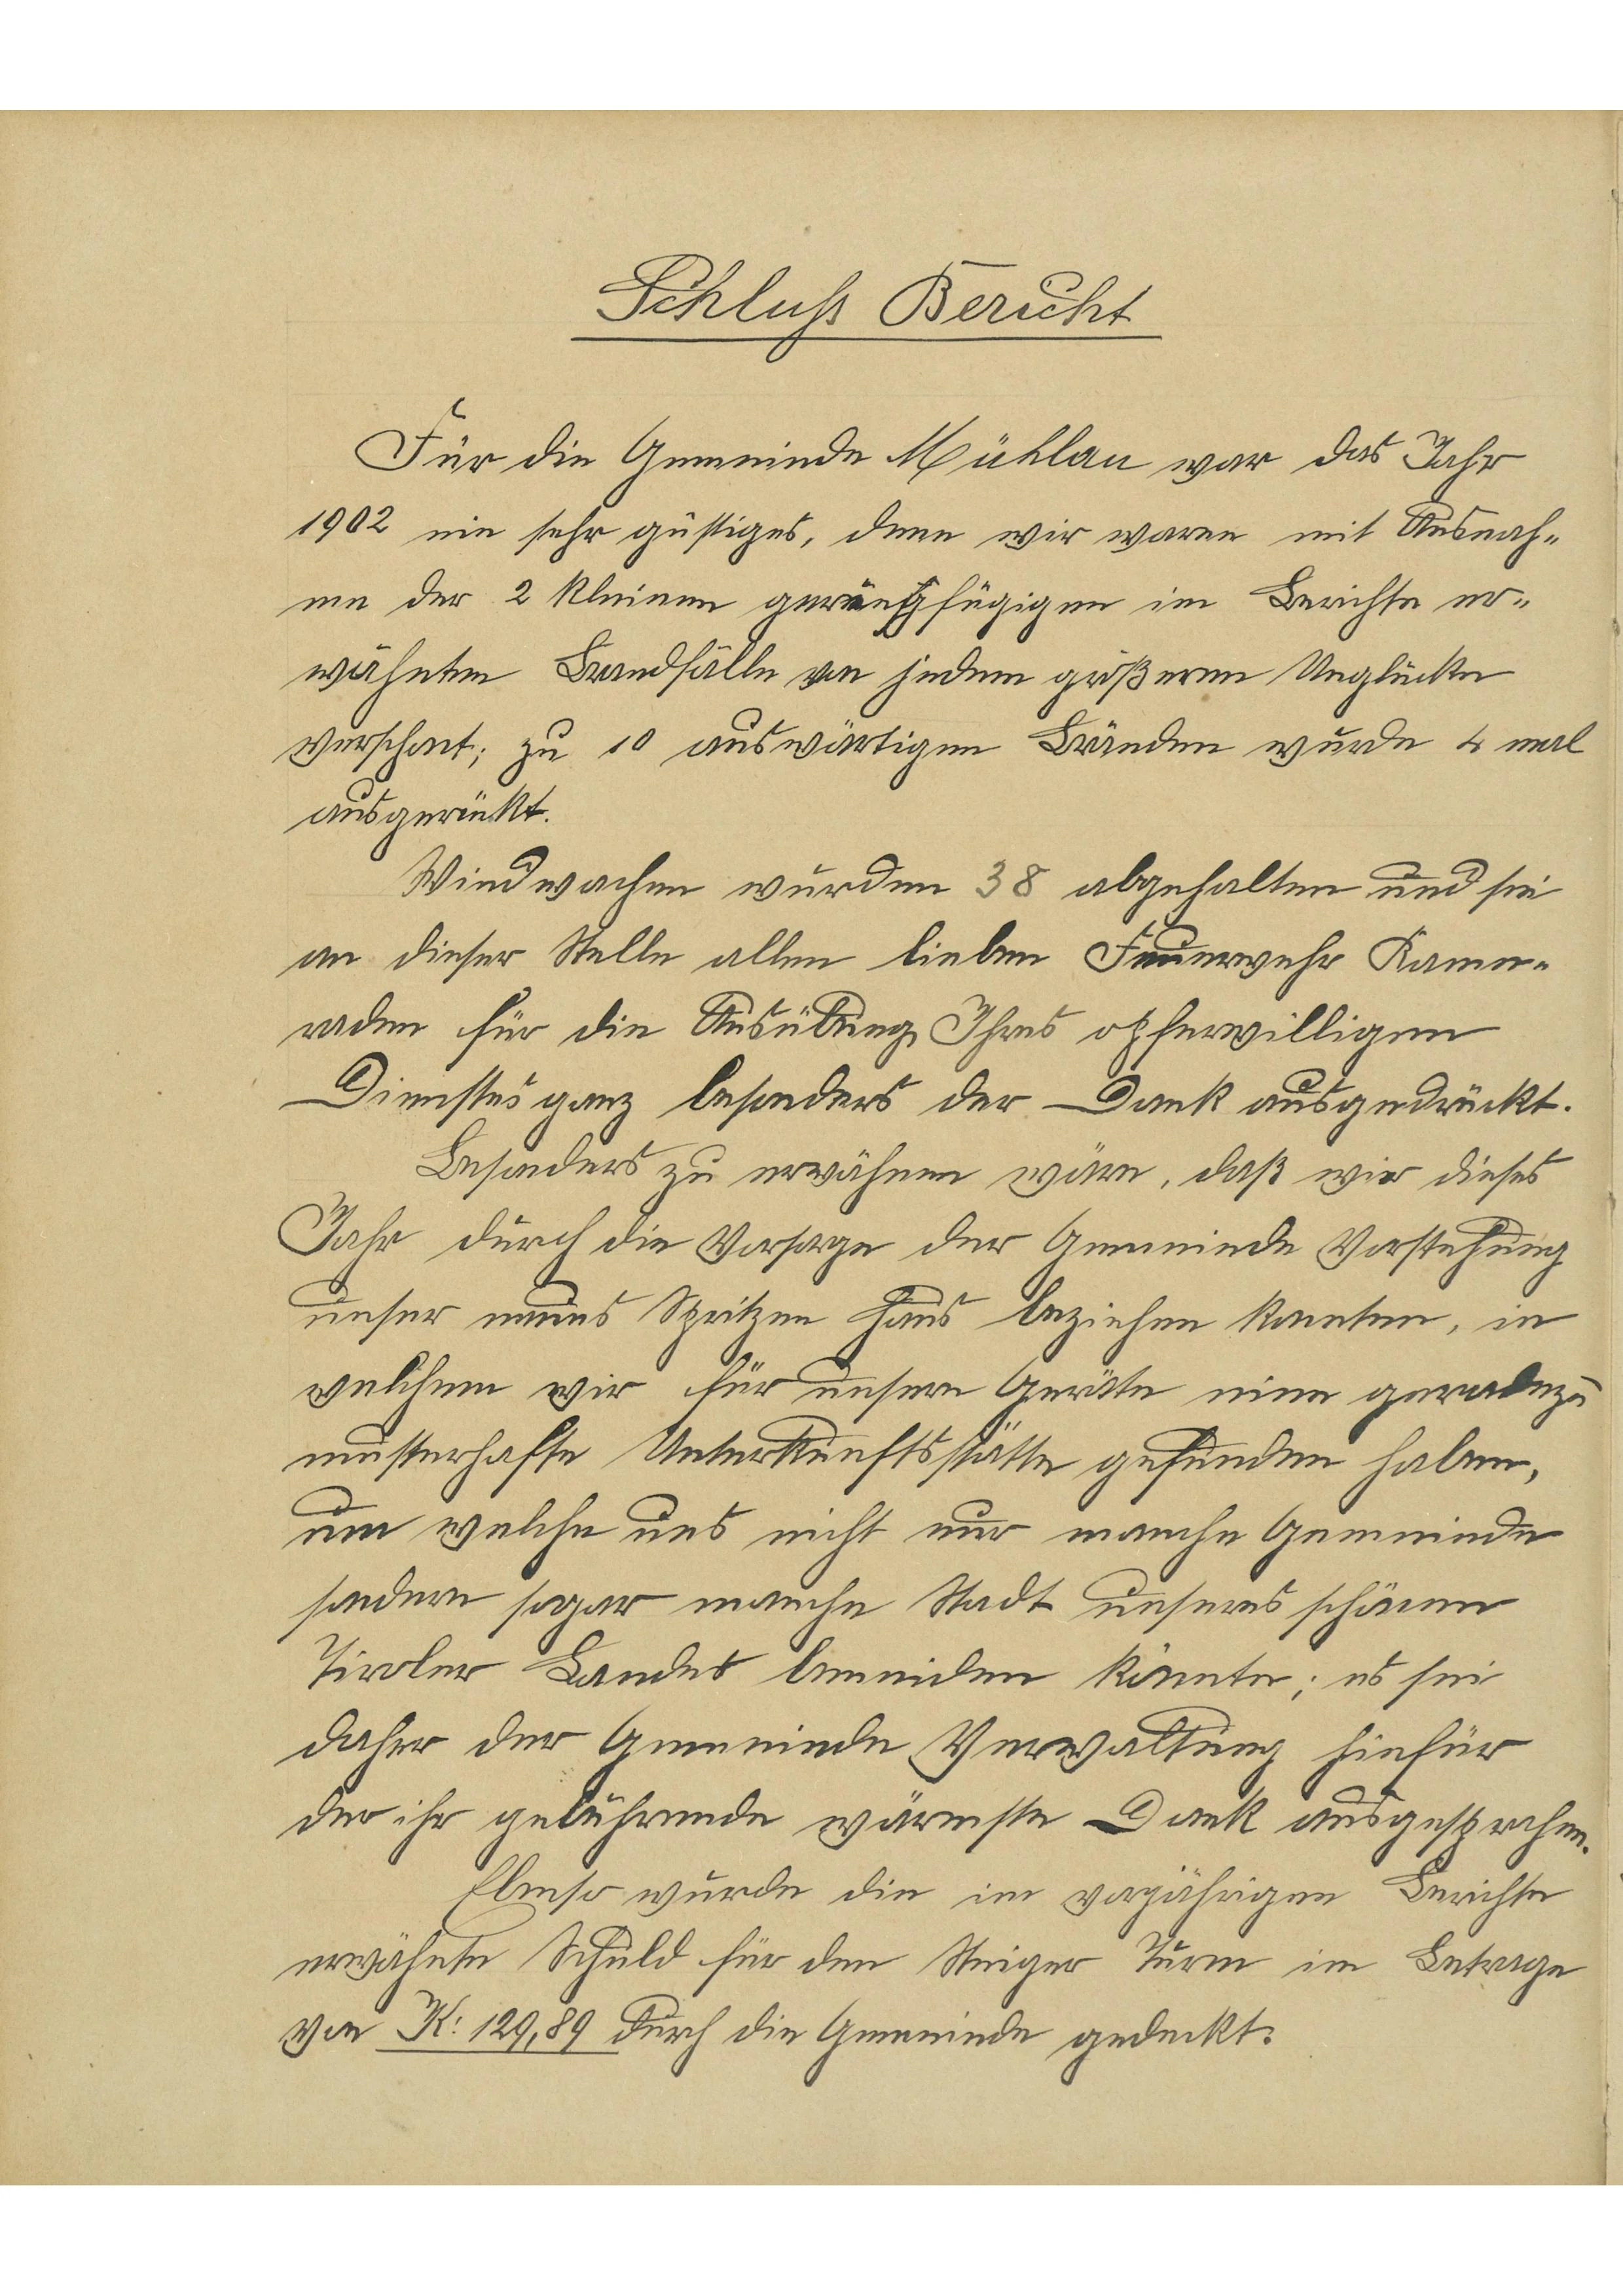 Schluß Bericht
Für die Gemeinde Mühlau war das Jahr
1902 ein sehr güstiges, denn wir waren mit Ausnah-
me der 2 kleinen geringfügigen im Berichte er-
wähnten Brandfälle von jedem größeren Unglücke
verschont; zu 10 auswärtigen Bränden wurde 4 mal
ausgerückt.
Windwachen wurden 38 abgehalten und sei
an dieser Stelle allen lieben Feuerwehr Kame-
raden für die Ausübung Ihres opferwilligen
Dienstes ganz besonders der Dank ausgedrückt.
Besonders zu erwähnen wäre, daß wir dieses
Jahr durch die Vorsorge der Gemeinde Vorstehung
unser neues Spritzen Haus beziehen konnten, in
welchem wir für unsere Geräte eine geradezu
musterhafte Unterkunftsstätte gefunden haben,
um welche uns nicht nur manche Gemeinde
sondern sogar manche Stadt unseres schönen
Tiroler Landes beneiden könnte; es sei
daher der Gemeinde Verwaltung hiefür
der ihr gebührende wärmste Dank ausgesprochen.
Ebenso wurde die im vorjährigen Berichte
erwähnte Schuld für den Steiger Turm im Betrage
von K: 129,89 durch die Gemeinde gedeckt.